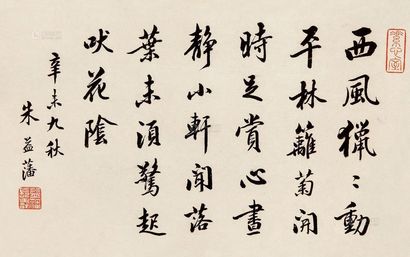 西風獵〻動
平林籬菊開
時足賞心晝
静小軒聞落
葉未須驚起
吠花陰
辛未九秋
朱益藩